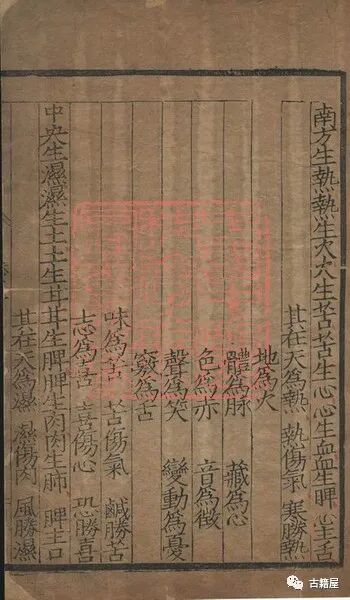 南方生熱熱生火火生苦苦生心心生血血生脾心主舌
其在天為熱 熱傷氣 寒勝熱
地為火
體為脉 藏為心
色為赤 音為徵
聲為笑 變動為憂
竅為舌
味為苦 苦傷氣 鹹勝苦
志為喜 喜傷心 恐勝喜
中央生濕濕生土土生甘甘生脾脾生肉肉生肺 脾主口
其在天為濕 濕傷肉 風勝濕
古籍屋